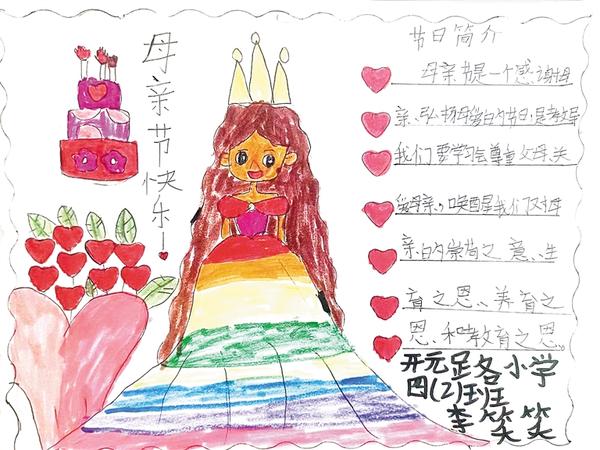 母亲节快乐！
节日简介
母亲节是一个感谢母
亲、弘扬母爱的节日,是教导
我们要学习会尊重父母、关
爱母亲。唤醒我们对母
亲的崇尚之意、生
育之恩、养育之
恩、和教育之恩。
开元足各小学
四(2)班
李笑笑